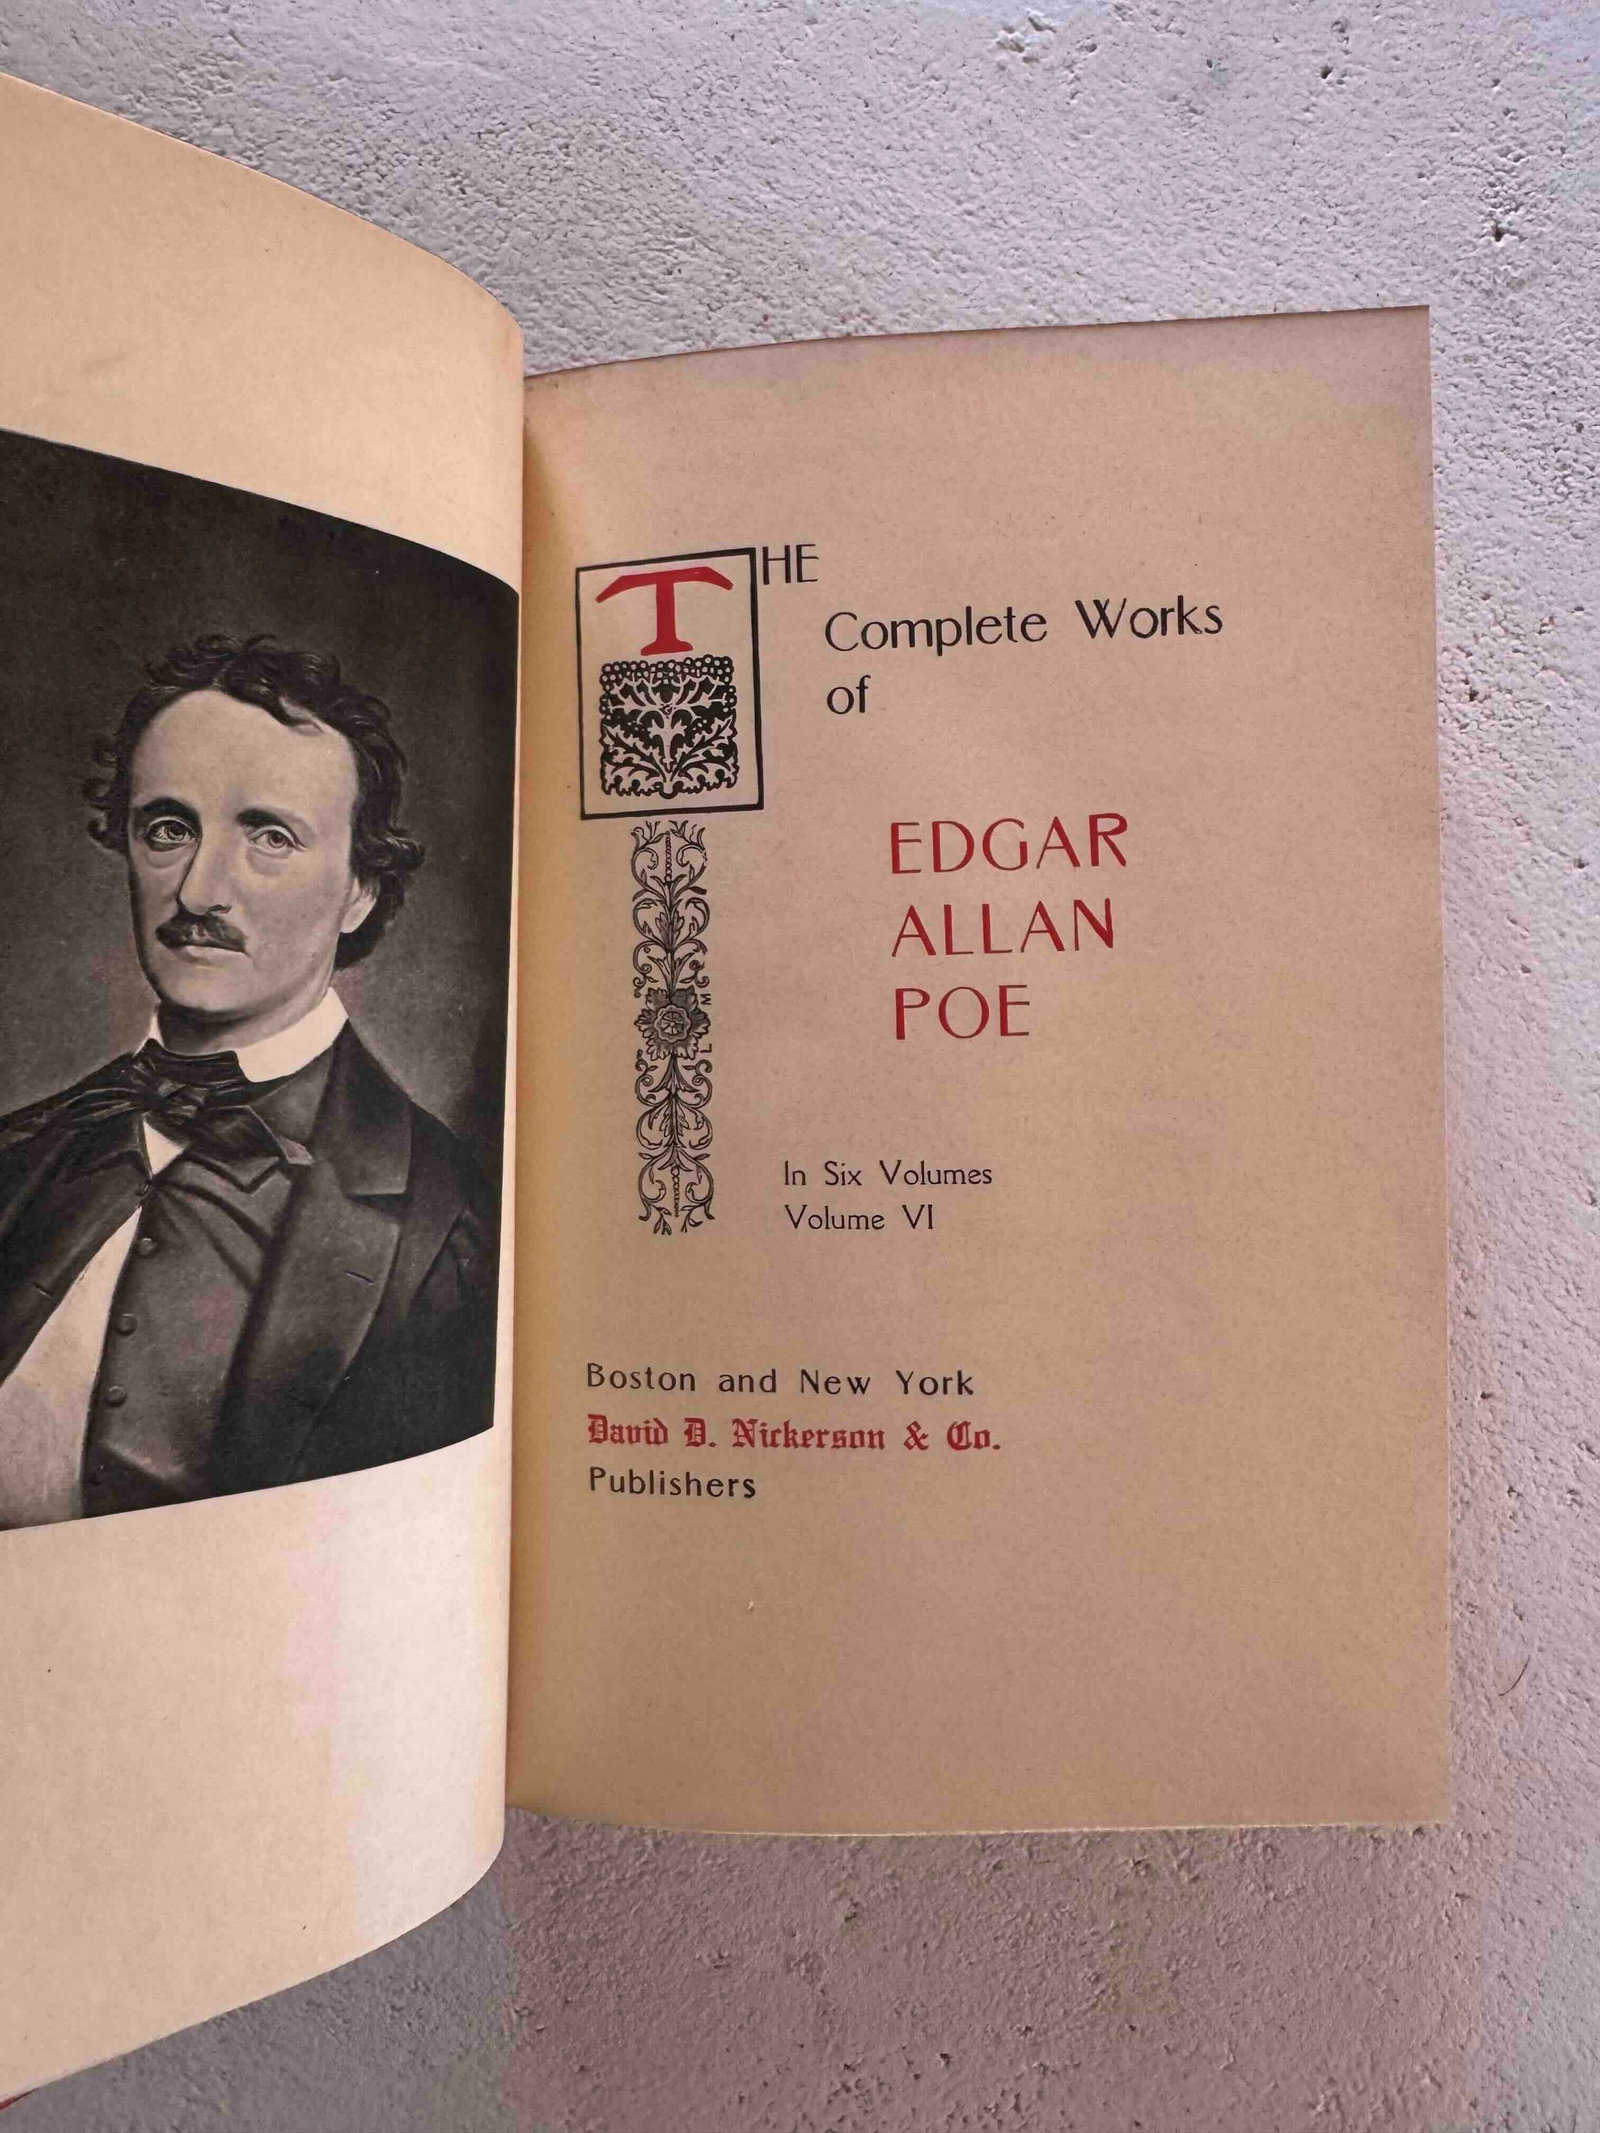 THE
Complete Works
of
EDGAR
ALLAN
POE
In Six Volumes
Volume VI
Boston and New York
David D. Nickerson & Co.
Publishers